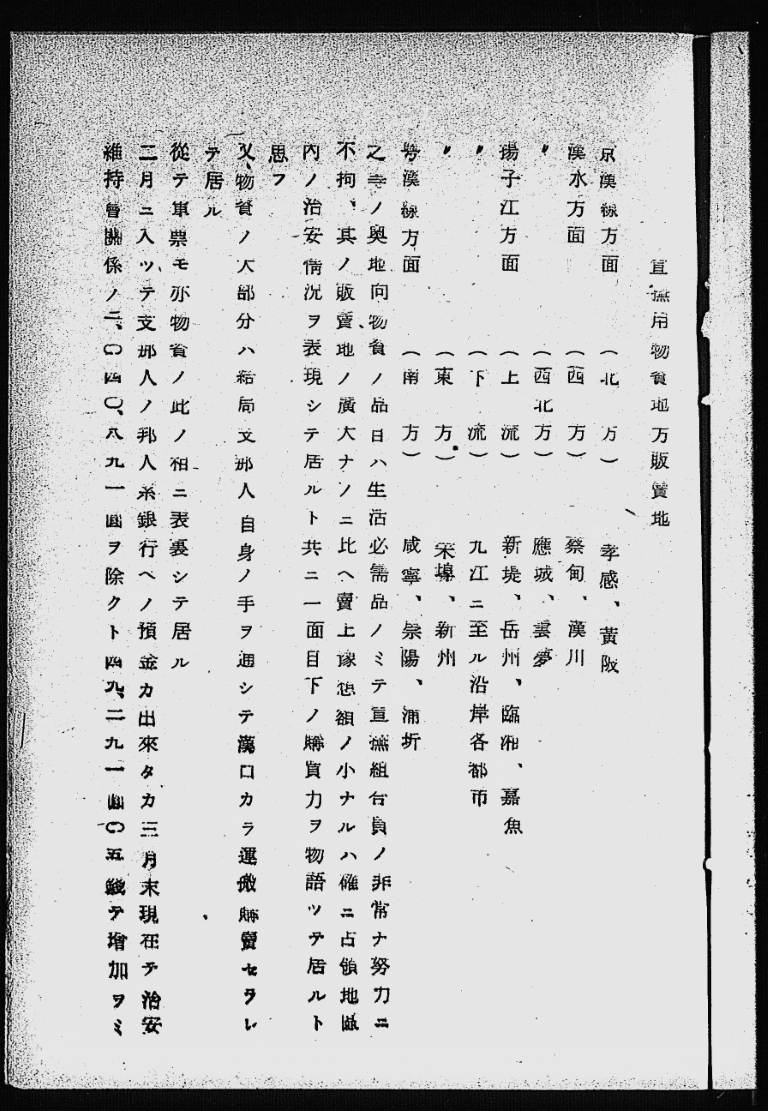 宣撫用物資地方販賣地
京漢線方面 (北方) 孝感、黃陂
漢水方面 (西方) 蔡甸、漢川
〃 (西北方) 應城、雲夢
揚子江方面 (上流) 新堤、岳州、臨湘、嘉魚
〃 (下流) 九江ニ至ル沿岸各都市
〃 (東方) 宋埠、新州
粤漢線方面 (南方) 咸寧、崇陽、蒲圻
之等ノ奧地向物資ノ品目ハ生活必需品ノミテ宣撫組合員ノ非常ナ努力ニ
不拘、其ノ販賣地ノ廣大ナノニ比ヘ賣上豫想額ノ小ナルハ確ニ占領地區
內ノ治安情況ヲ表現シテ居ルト共ニ一面目下ノ購買力ヲ物語ツテ居ルト
思フ
又、物資ノ大部分ハ結局支那人自身ノ手ヲ通シテ漢口カラ運搬購賣セラレ
テ居ル
從テ軍票モ亦物資ノ此ノ相ニ表裏シテ居ル
二月ニ入ツテ支那人ノ邦人系銀行ヘノ預金カ出來タカ三月末現在テ治安
維持會關係ノ二、〇四〇、八九一圓ヲ除クト四九、二九一圓〇五錢テ增加ヲミ